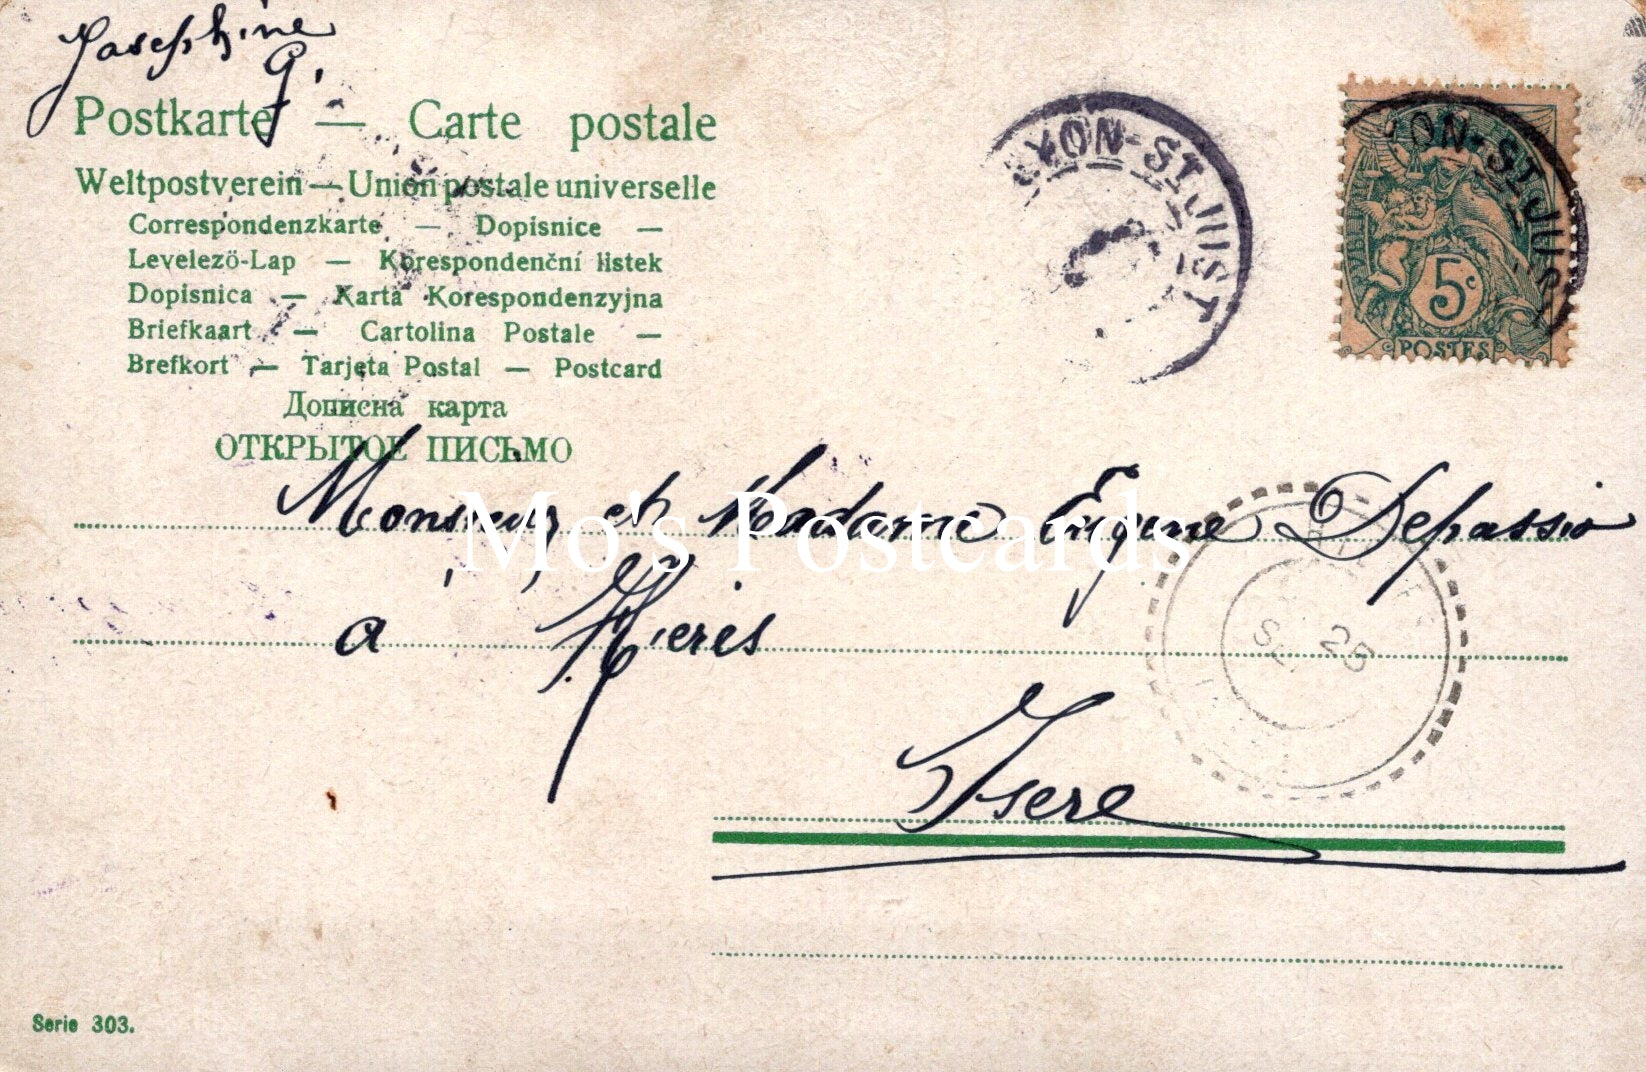 Josephine
G.
Postkarte — Carte postale
Weltpostverein — Union postale universelle
Correspondenzkarte — Dopisnice —
Levelezö-Lap — Korespondenční listek
Dopisnica — Karta Korespondenzyjna
Briefkaart — Cartolina Postale —
Brefkort — Tarjeta Postal — Postcard
Дописна карта
ОТКРЫТОЕ ПИСЬМО
LYON-ST JUST
YON-ST JUST
5c
POSTES
Monsieur et Madame Eugene Depassio
Mo's Postcards
25
à
Isere
Serie 303.